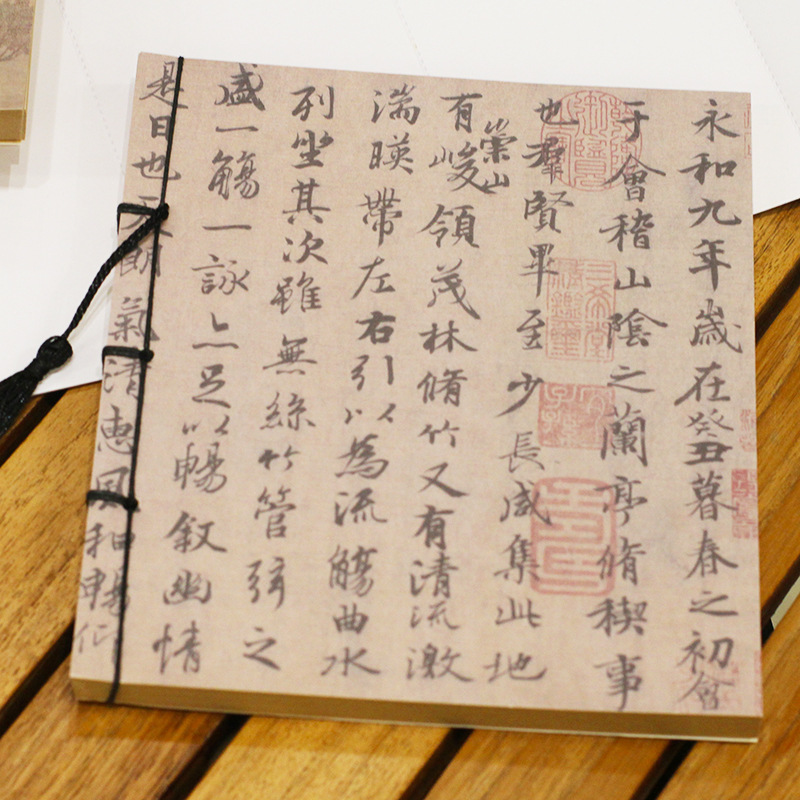 永和九年歲在癸丑暮春之初會
于會稽山陰之蘭亭脩稧事
也群賢畢至少長咸集此地
有崇山峻領茂林脩竹又有清流激
湍暎帶左右引以為流觴曲水
列坐其次雖無絲竹管弦之
盛一觴一詠亦足以暢叙幽情
是日也天朗氣清惠風和暢仰